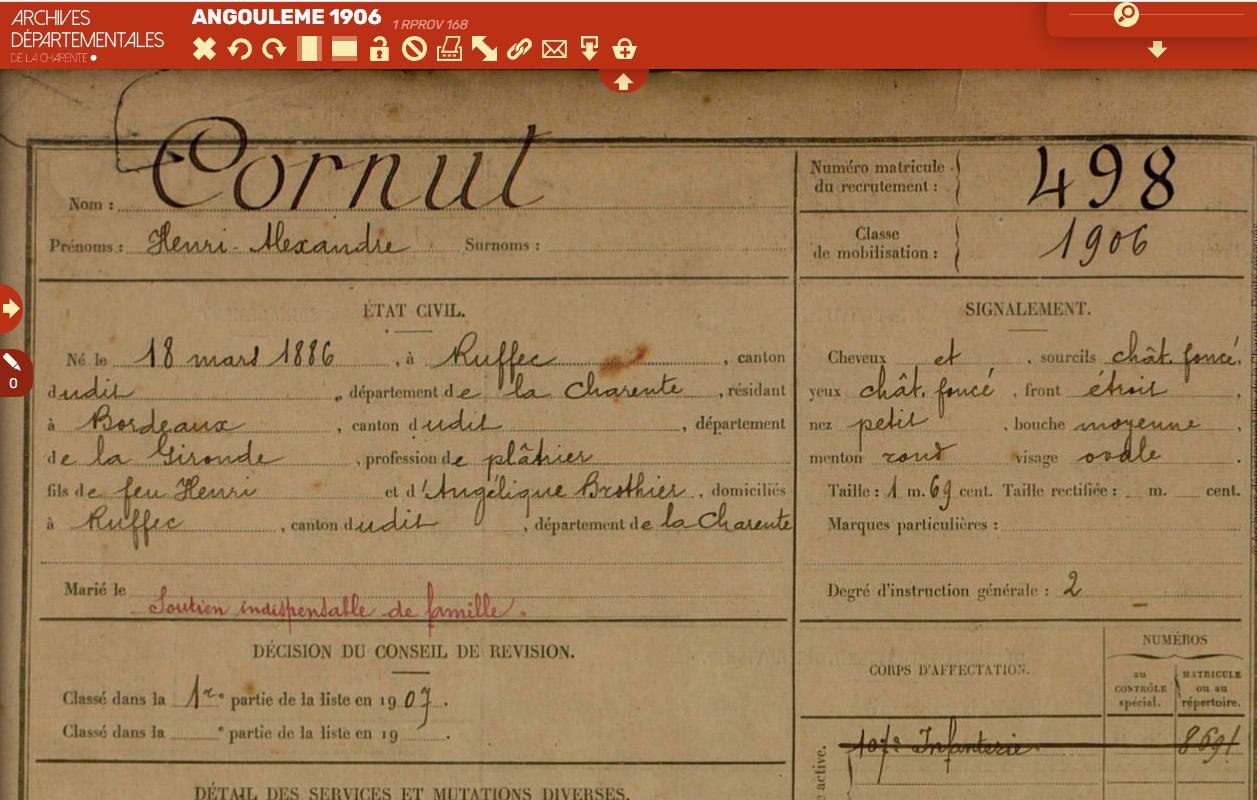 ARCHIVES
DÉPARTEMENTALES
DE LA CHARENTE
ANGOULEME 1906 1 RPROV 168
0
Nom : Cornut
Prénoms : Henri-Alexandre Surnoms :
ÉTAT CIVIL.
Né le 18 mars 1886, à Ruffec, canton
dudit, département de la Charente, résidant
à Bordeaux, canton dudit, département
de la Gironde, profession de plâtrier
fils de feu Henri et d'Angélique Brothier, domiciliés
à Ruffec, canton dudit, département de la Charente
Marié le
Soutien indispensable de famille.
DÉCISION DU CONSEIL DE REVISION.
Classé dans la 1re partie de la liste en 1907.
Classé dans la e partie de la liste en 19 .
DÉTAIL DES SERVICES ET MUTATIONS DIVERSES.
Numéro matricule
du recrutement : 498
Classe
de mobilisation : 1906
SIGNALEMENT.
Cheveux et, sourcils chât. foncé,
yeux chât. foncé, front étroit,
nez petit, bouche moyenne,
menton rond visage ovale.
Taille : 1 m. 69 cent. Taille rectifiée : m. cent.
Marques particulières :
Degré d'instruction générale : 2
CORPS D'AFFECTATION.
NUMÉROS
au
CONTRÔLE
spécial.
MATRICULE
ou au
répertoire.
e active.
107e Infanterie 8691